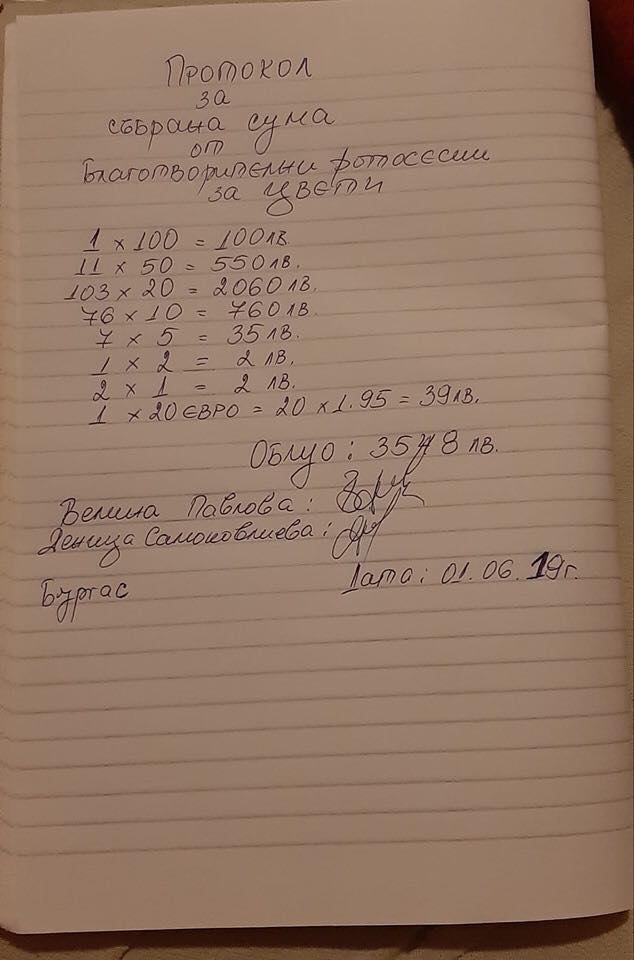 Протокол
за
събрана сума
от
Благотворителни фотосесии
за Цвети
1 x 100 = 100лв.
11 x 50 = 550лв.
103 x 20 = 2060лв.
76 x 10 = 760лв.
7 x 5 = 35лв.
1 x 2 = 2 лв.
2 x 1 = 2 лв.
1 x 20 евро = 20 x 1.95 = 39лв.
Общо: 3548 лв.
Велина Павлова:
Деница Самоковлиева:
Бургас Дата: 01.06.19г.